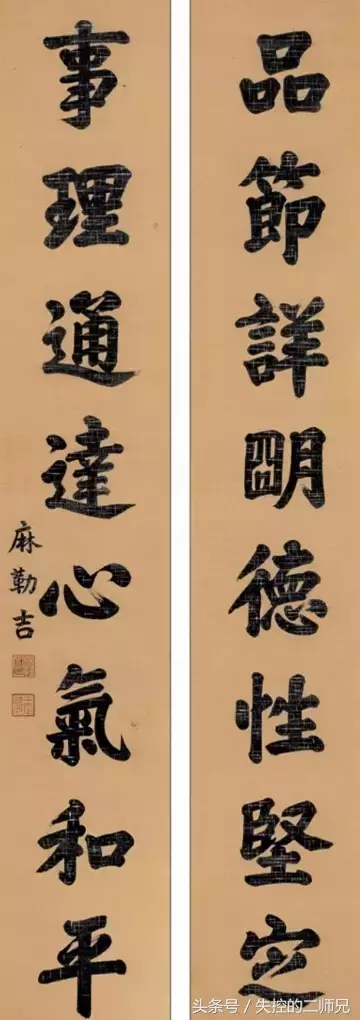 品節詳明德性堅定
事理通達心氣和平
麻勒吉
头条号／失控的二师兄